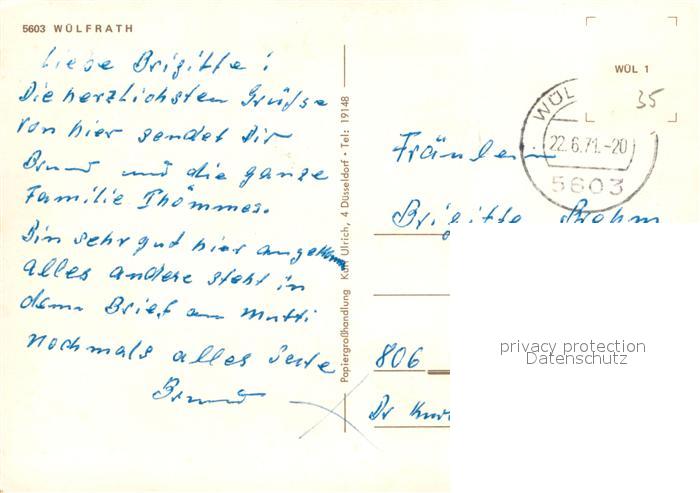 5603 WÜLFRATH
Liebe Brigitte!
Die herzlichsten Grüße
von hier sendet Dir
Bruno und die ganze
Familie Thömmes.
Bin sehr gut hier angekommen
alles andere steht in
dem Brief an Mutti
nochmals alles Gute
Bruno
Papiergroßhandlung Kurt Ulrich, 4 Düsseldorf · Tel: 19148
WÜL 1
35
WÜL
22.6.71.-20
5603
Fräulein
Brigitte
806
Dr Kur
privacy protection
Datenschutz